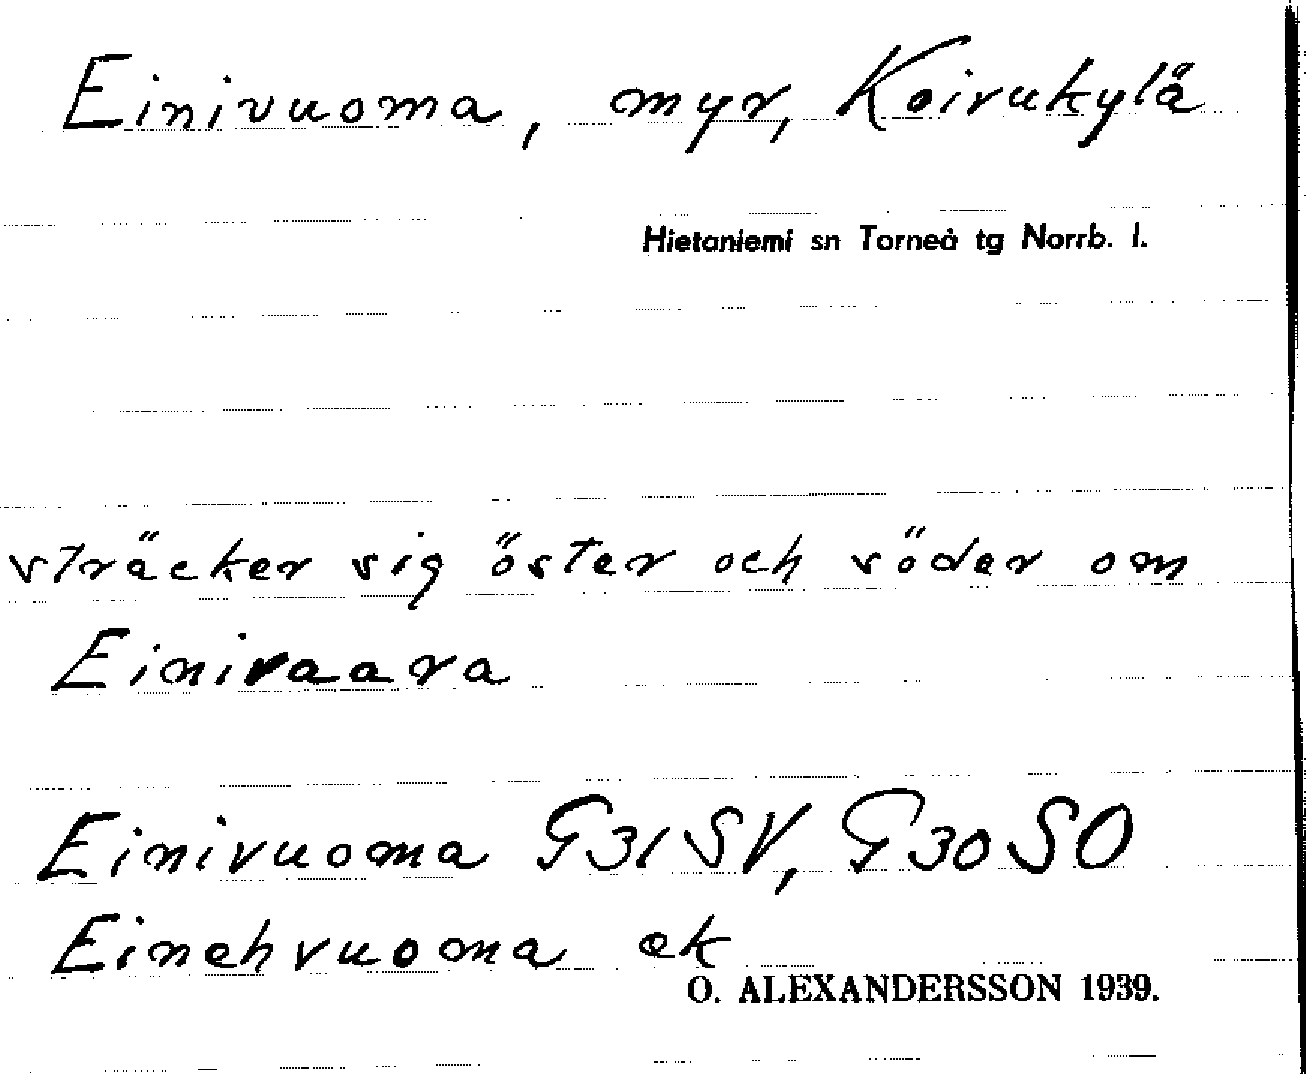 Einivuoma, myr, Koivukylä
Hietaniemi sn Torneå tg Norrb. l.
sträcker sig öster och söder om
Einivaara
Einivuoma G31SV, G30SO
Einehvuoma ek
O. ALEXANDERSSON 1939.